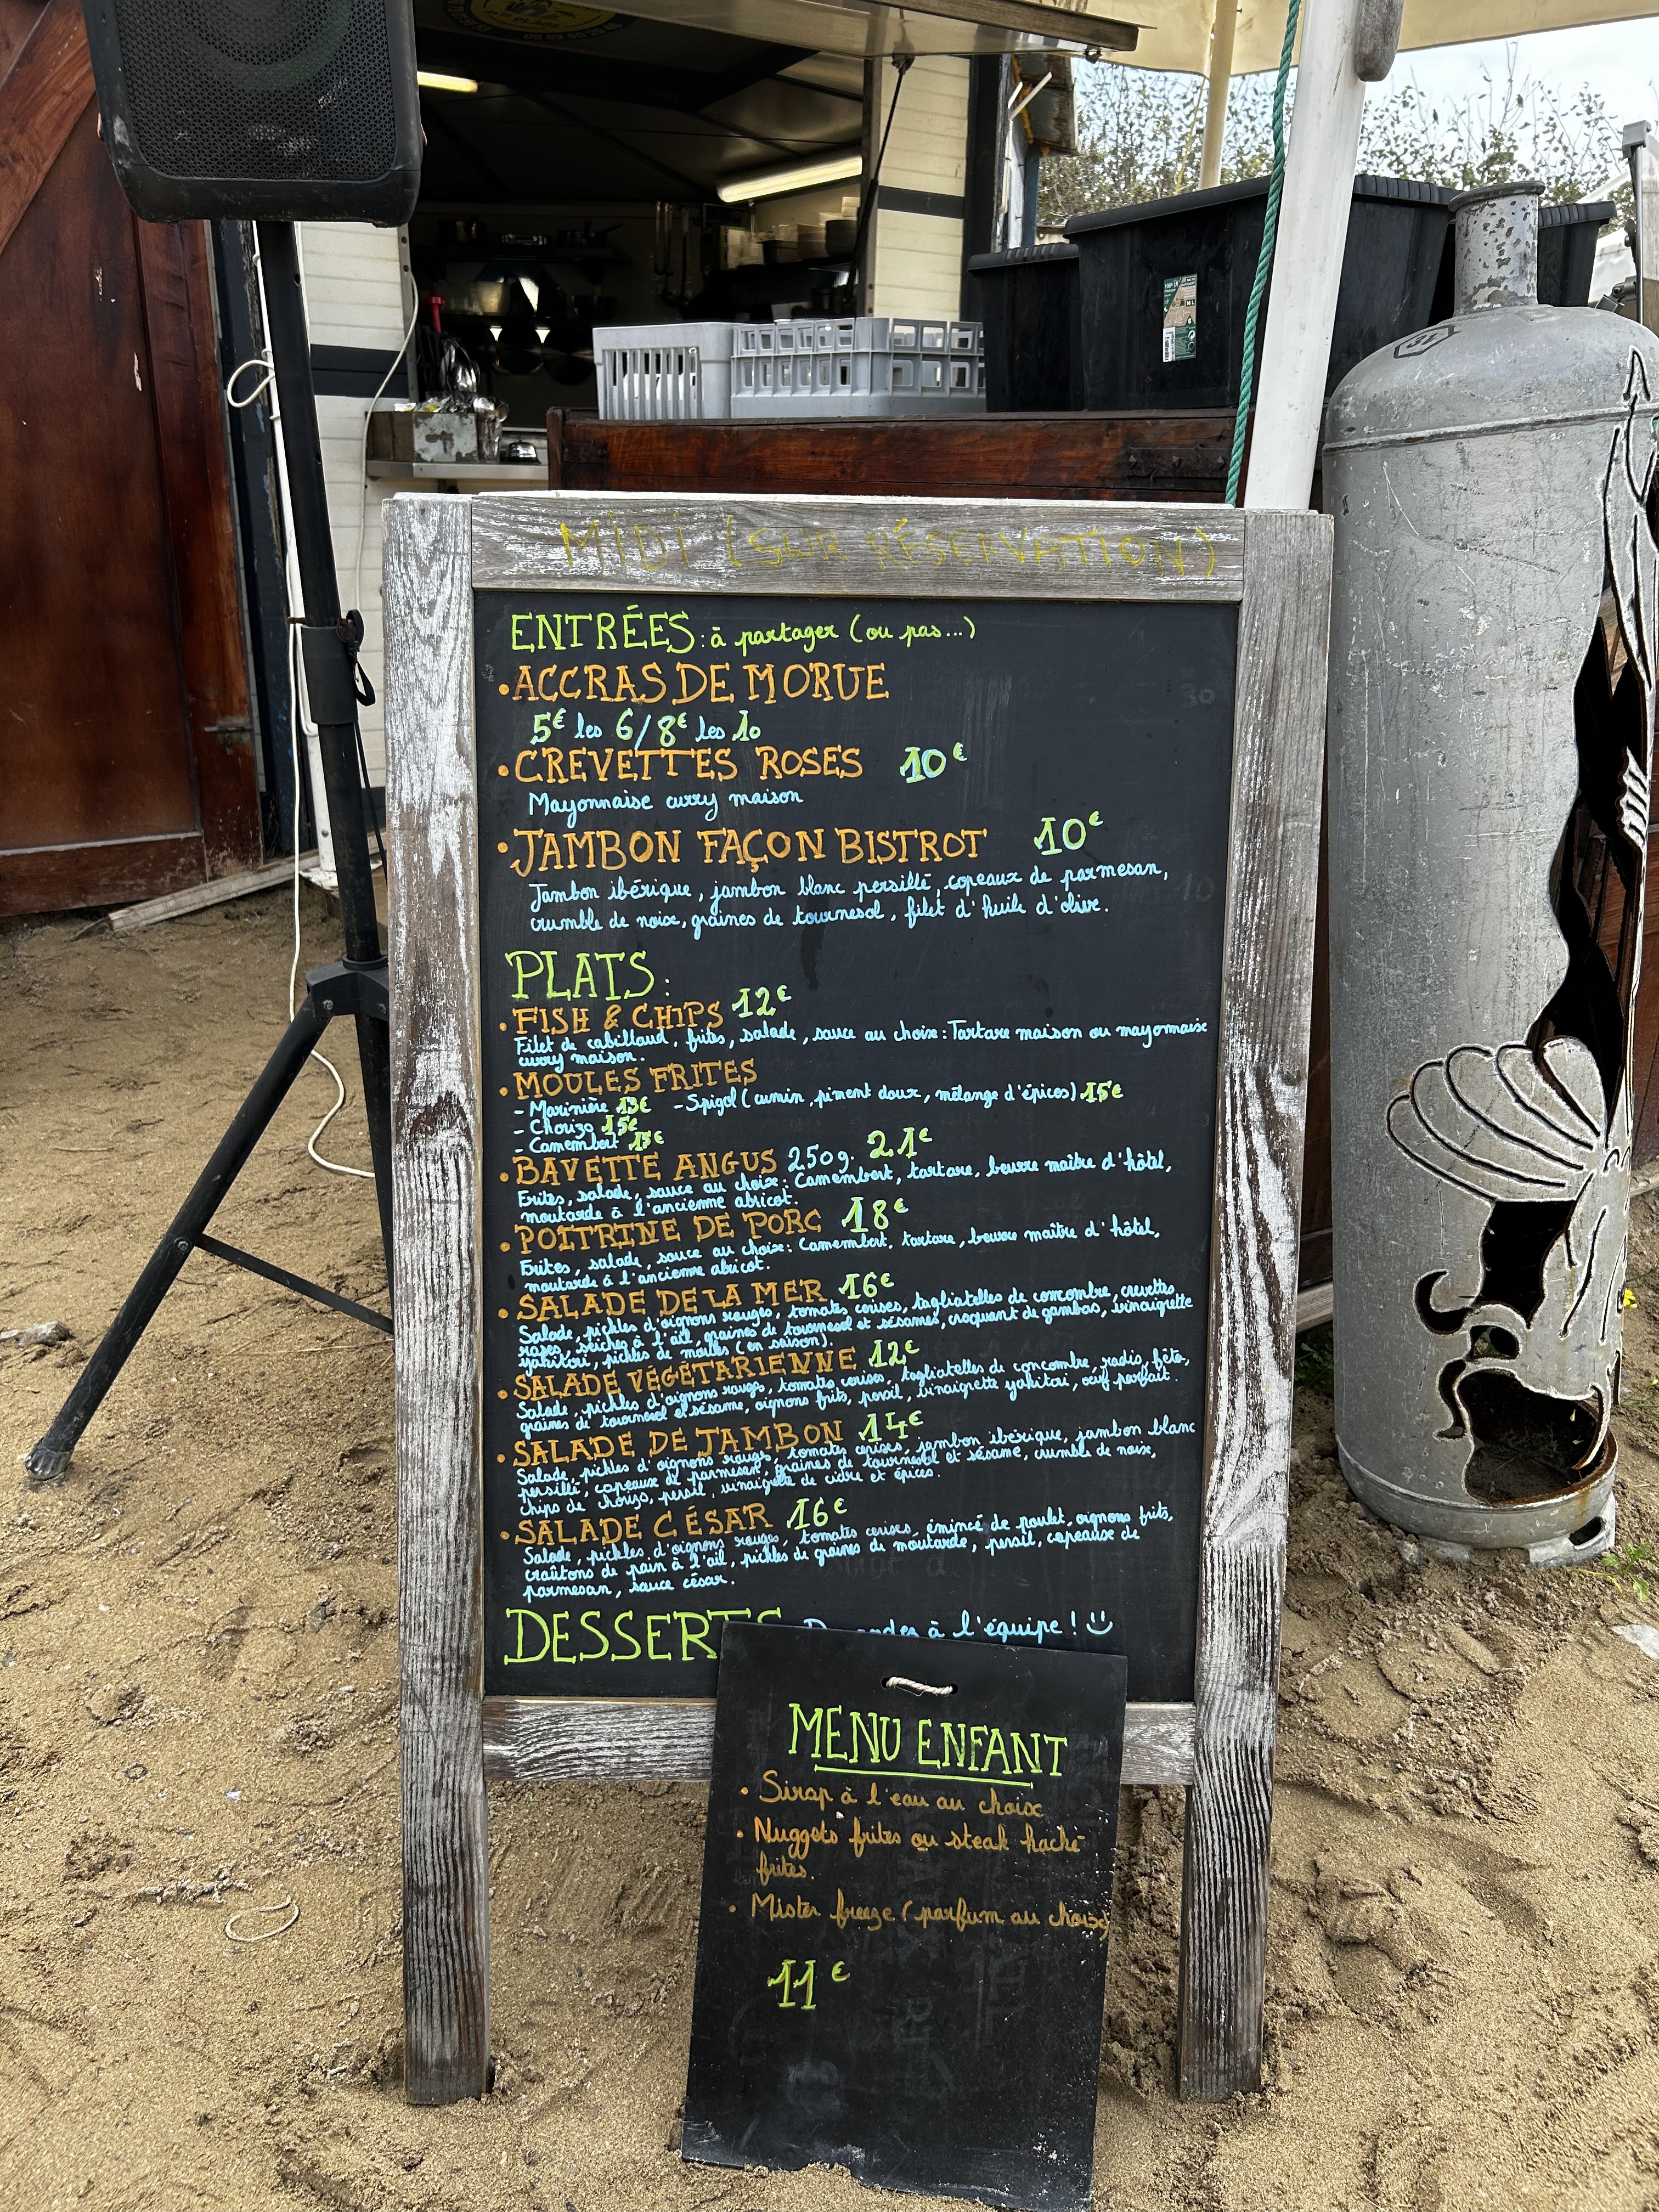 MIDI (SUR RÉSERVATION)
ENTRÉES: à partager (ou pas...)
•ACCRAS DE MORUE
5€ les 6/8€ les 10
•CREVETTES ROSES 10€
Mayonnaise curry maison
•JAMBON FAÇON BISTROT 10€
Jambon ibérique, jambon blanc persillé, copeaux de parmesan,
crumble de noix, graines de tournesol, filet d'huile d'olive.
PLATS:
•FISH & CHIPS 12€
Filet de cabillaud, frites, salade, sauce au choix: Tartare maison ou mayonnaise
curry maison.
•MOULES FRITES
- Marinière 13€ - Spigol (cumin, piment doux, mélange d'épices) 15€
- Chorizo 15€
- Camembert 15€
•BAVETTE ANGUS 250g. 21€
Frites, salade, sauce au choix: Camembert, tartare, beurre maître d'hôtel,
moutarde à l'ancienne abricot.
•POITRINE DE PORC 18€
Frites, salade, sauce au choix: Camembert, tartare, beurre maître d'hôtel,
moutarde à l'ancienne abricot.
•SALADE DE LA MER 16€
Salade, pickles d'oignons rouges, tomates cerises, tagliatelles de concombre, crevettes
roses, seiches à l'ail, graines de tournesol et sésames, croquant de gambas, vinaigrette
yakitori, pickles de moules (en saison).
•SALADE VÉGÉTARIENNE 12€
Salade, pickles d'oignons rouges, tomates cerises, tagliatelles de concombre, radis, féta,
graines de tournesol et sésame, oignons frits, persil, vinaigrette yakitori, oeuf parfait.
•SALADE DE JAMBON 14€
Salade, pickles d'oignons rouges, tomates cerises, jambon ibérique, jambon blanc
persillé, copeaux de parmesan, graines de tournesol et sésame, crumble de noix,
chips de chorizo, persil, vinaigrette de cidre et épices.
•SALADE CÉSAR 16€
Salade, pickles d'oignons rouges, tomates cerises, émincé de poulet, oignons frits,
croûtons de pain à l'ail, pickles de graines de moutarde, persil, copeaux de
parmesan, sauce césar.
DESSERTS à l'équipe! :)
MENU ENFANT
• Sirop à l'eau au choix
• Nuggets frites ou steak haché
frites.
• Mister freeze (parfum au choix)
11€